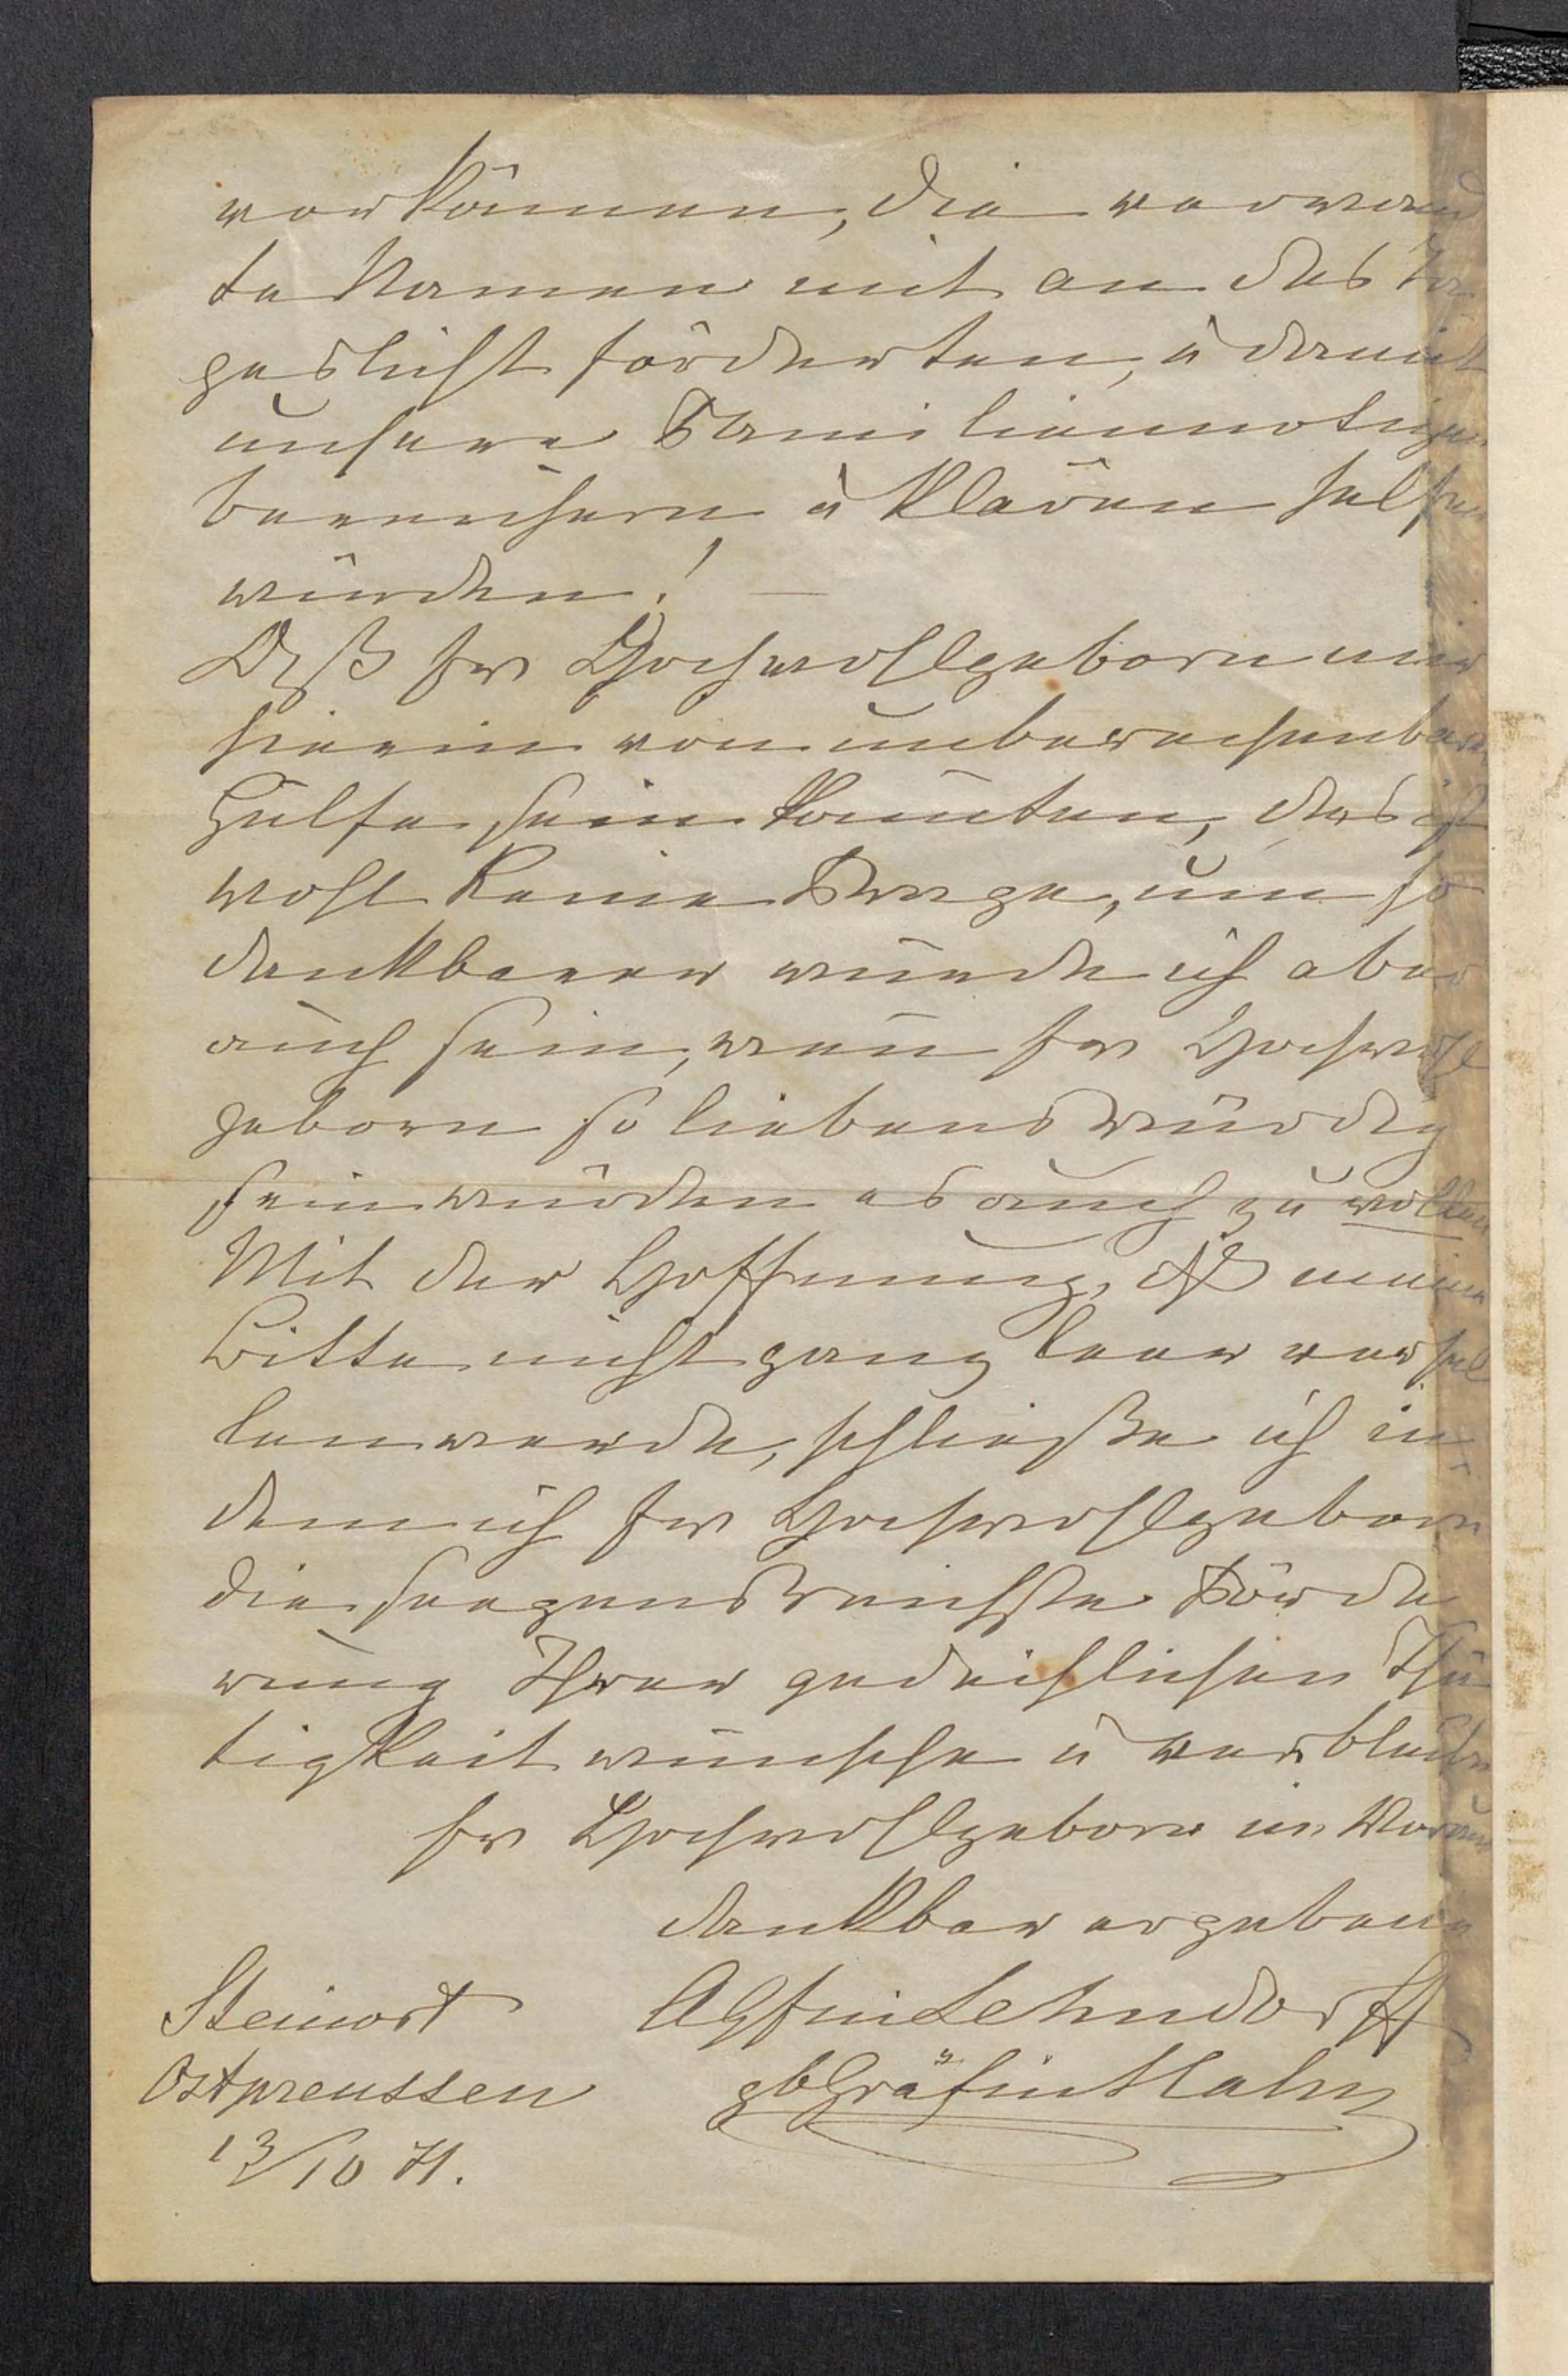 vorkämmen, die verwand
te Namen mit an das Ta
geslicht förderten, u damit
unsere Familiennotizen
bereichern u klären helfen
würden! —
Daß Ew Hochwohlgeborn mir
hierin von unberechenbarer
Hülfe sein könnten, das ist
wohl keine Frage, um so
dankbarer würde ich aber
auch sein, wenn Ew Hochwohl
geborn so liebenswürdig
sein würden es auch zu wollen
Mit der Hoffnung, daß meine
Bitte nicht ganz leer verhal
len werde, schließe ich in
dem ich Ew Hochwohlgeborn
die seegensreichste Förde
rung Ihrer gedeihlichen Thä
tigkeit wünsche u verbleibe
Ew Hochwohlgeborn im Voraus
dankbar ergebene
AGfin Lehndorff
gb Gräfin Hahn
Steinort
Ostpreussen
13/10 71.